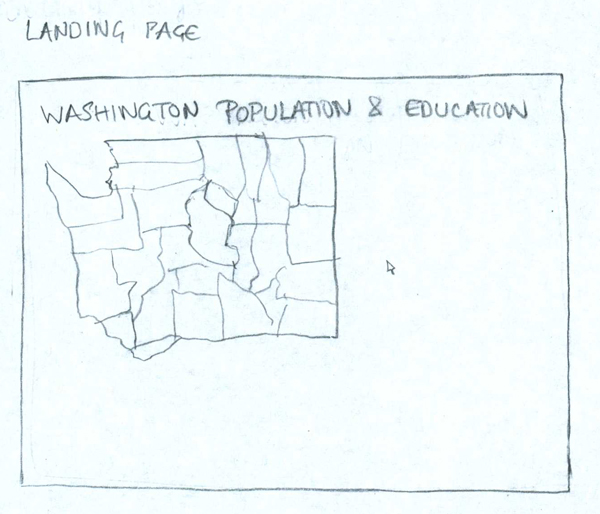 LANDING PAGE
WASHINGTON POPULATION & EDUCATION